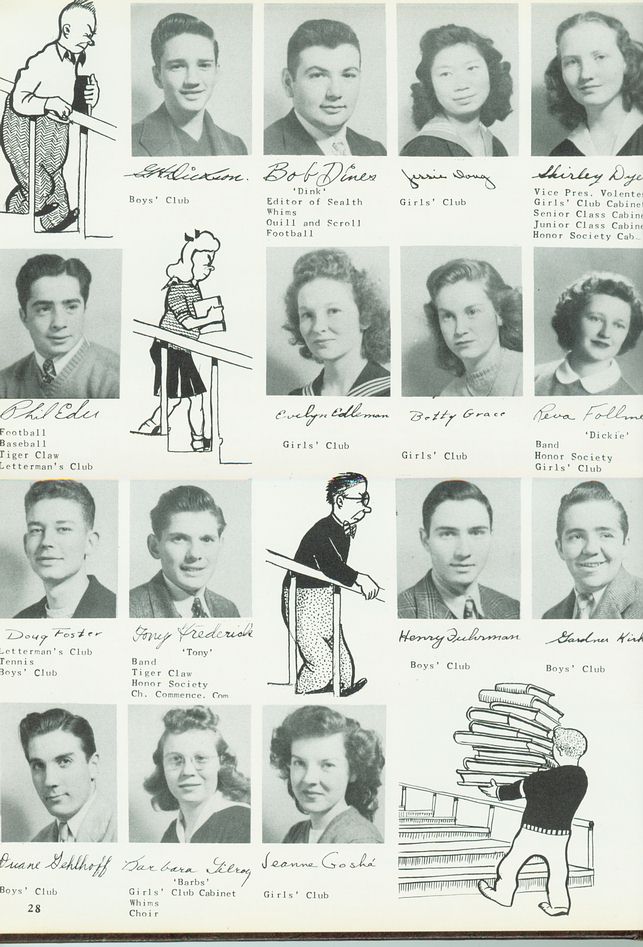 G.H. Dickson.
Boys' Club
Bob Dines
'Dink'
Editor of Sealth
Whims
Quill and Scroll
Football
Jessie Dong
Girls' Club
Shirley Dye
Vice Pres. Volunte
Girls' Club Cabine
Senior Class Cabin
Junior Class Cabine
Honor Society Cab.
Phil Eder
Football
Baseball
Tiger Claw
Letterman's Club
Evelyn Edleman
Girls' Club
Betty Grace
Girls' Club
Reva Follme
'Dickie'
Band
Honor Society
Girls' Club
Doug Foster
Letterman's Club
Tennis
Boys' Club
Tony Frederick
'Tony'
Band
Tiger Claw
Honor Society
Ch. Commence. Com
Henry Fuhrman
Boys' Club
Gardner Kirk
Boys' Club
Duane Gehlhoff
Boys' Club
Barbara Gilroy
'Barbs'
Girls' Club Cabinet
Whims
Choir
Jeanne Goshá
Girls' Club
28